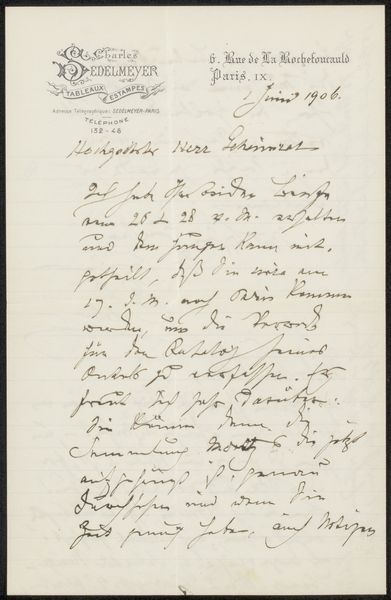 Charles
SEDELMEYER
TABLEAUX
ESTAMPES
Adresse Télégraphique: SEDELMEYER-PARIS.
TÉLÉPHONE
152-48
6. Rue de La Rochefoucauld
Paris, IX.
1 Juni 1906.
Hochgeehrter Herr Geheimrat
Ich habe Ihre beiden Briefe
vom 26 & 28 v. M. erhalten
und dem jungen Kann mit-
getheilt, daß Sie etwa am
17. d. M. nach Paris kommen
werden, um die Vorrede
für den Katalog seines
Onkels zu verfassen. Er
freut sich sehr darüber.
Sie können dann die
Sammlung die jetzt
aufgehängt ist, genau
durchsehen und wenn Sie
Zeit genug haben, auch Notizen